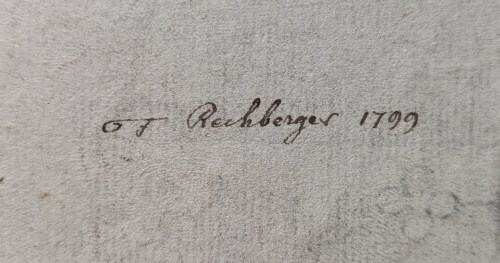 G F Rechberger 1799